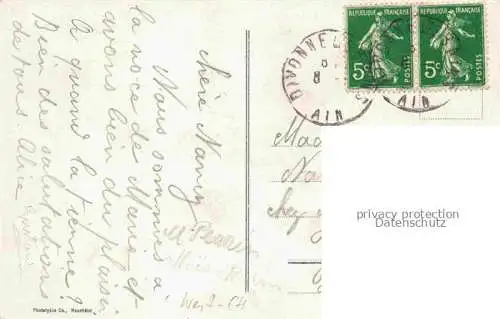 Chère Nancy
Nous sommes à
la noce de Marie et
avons bien du plaisir
A quand la tienne?
Bien des salutations
de tous. Alice
RÉPUBLIQUE FRANÇAISE
5c
POSTES
RÉPUBLIQUE FRANÇAISE
5c
POSTES
DIVONNE
8
AIN
AIN
Mad
Na
chez
privacy protection
Datenschutz
Phototypie Co., Neuchâtel